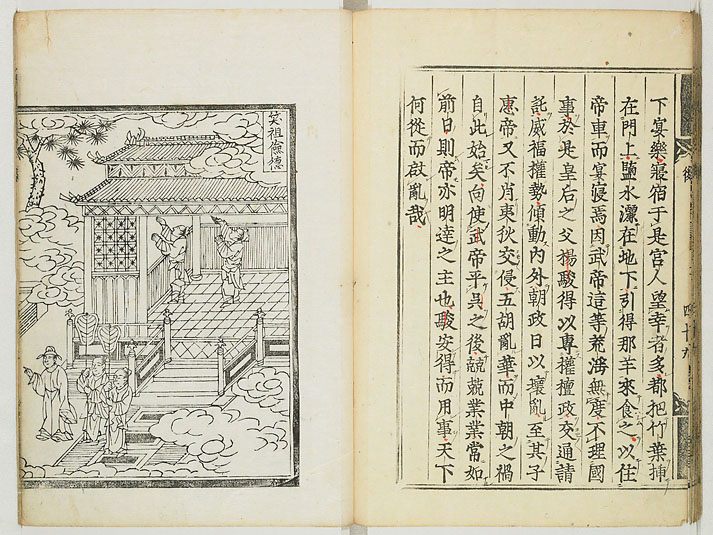 下宴樂寢宿于是宮人望幸者多都把竹葉插
在門上鹽水灑在地下引得那羊來食之以住
帝車而宴寢焉因武帝這等荒淫無度不理國
事於是皇后之父楊駿得以專權擅政交通請
託威福權勢傾動內外朝政日以壞亂至其子
惠帝又不肖夷狄交侵五胡亂華而中朝之禍
自此始矣向使武帝平吳之後兢兢業業常如
前日則帝亦明達之主也駿安得而用事天下
何從而啟亂哉
笑祖儉德